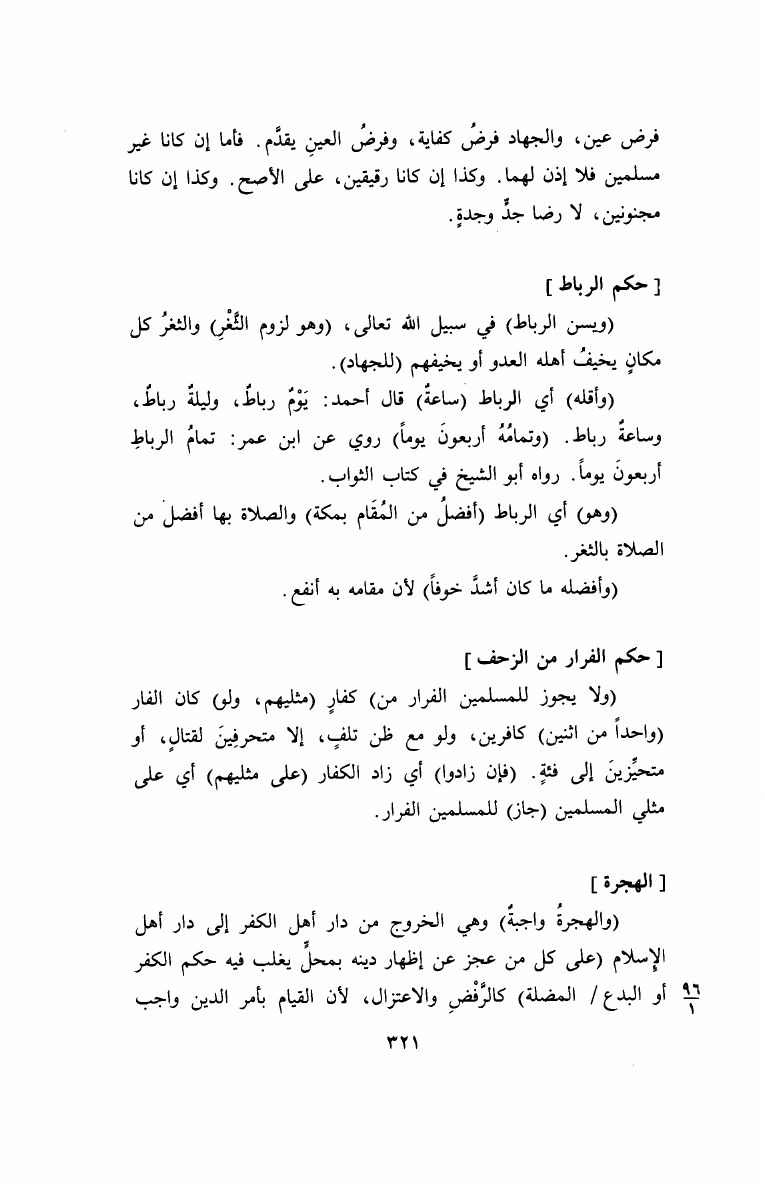 فرض عين، والجهاد فرضُ كفاية، وفرضُ العينِ يقدَّم. فأما إن كانا غير
مسلمين فلا إذن لهما. وكذا إن كانا رقيقين، على الأصح. وكذا إن كانا
مجنونين، لا رضا جدٍّ وجدةٍ.
[حكم الرباط]
(ويسن الرباط) في سبيل الله تعالى، (وهو لزوم الثَّغْرِ) والثغرُ كل
مكانٍ يخيفُ أهله العدو أو يخيفهم (للجهاد).
(وأقله) أي الرباط (ساعةٌ) قال أحمد: يَوْمٌ رباطٌ، وليلةٌ رباطٌ،
وساعةٌ رباط. (وتمامُهُ أربعونَ يوماً) روي عن ابن عمر: تمامُ الرباطِ
أربعونَ يوماً. رواه أبو الشيخ في كتاب الثواب.
(وهو) أي الرباط (أفضلُ من المُقَام بمكة) والصلاة بها أفضل من
الصلاة بالثغر.
(وأفضله ما كان أشدَّ خوفاً) لأن مقامه به أنفع.
[حكم الفرار من الزحف]
(ولا يجوز للمسلمين الفرار من) كفارٍ (مثليهم، ولو) كان الفار
(واحداً من اثنين) كافرين، ولو مع ظن تلفٍ، إلا متحرفِينَ لقتالٍ، أو
متحيِّزينَ إلى فئةٍ. (فإن زادوا) أي زاد الكفار (على مثليهم) أي على
مثلي المسلمين (جاز) للمسلمين الفرار.
[الهجرة]
(والهجرةُ واجبةٌ) وهي الخروج من دار أهل الكفر إلى دار أهل
الإسلام (على كل من عجز عن إظهار دينه بمحلٍّ يغلب فيه حكم الكفر
أو البدع / المضلة) كالرَّفْضِ والاعتزال، لأن القيام بأمر الدين واجب
٩٦
١
٣٢١